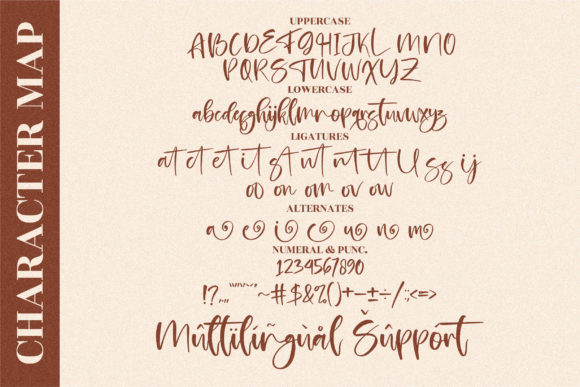 CHARACTER MAP
UPPERCASE
ABCDEFGHIJKL MNO
PQRSTUVWXYZ
LOWERCASE
abcdefghijklmnopqrstuvwxyz
LIGATURES
at et it ut nt tt ll ss ij
oo on om ov ow
ALTERNATES
a e i c u n m
NUMERAL & PUNC.
1234567890
!?.,,"""''~#$&%()+-±÷/:;<=>
Mûltïlíñgùål Šûppört